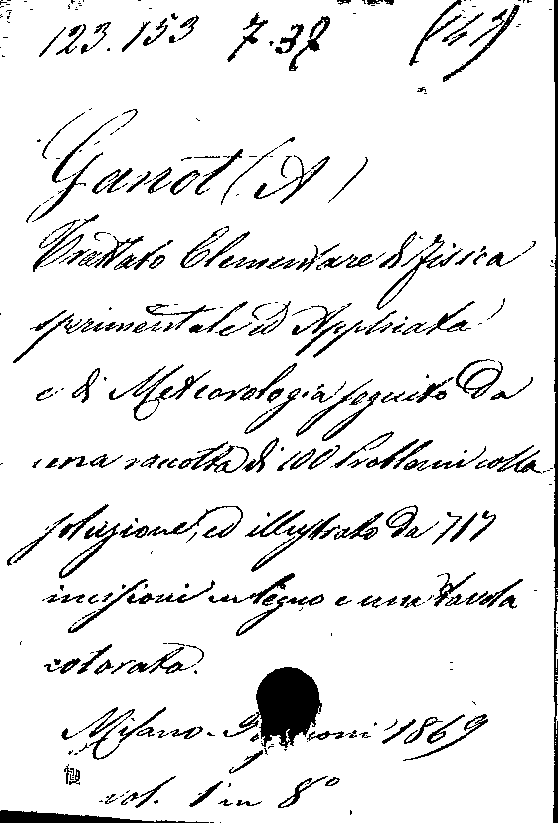 123.153 7.37 (47)
Ganot (A)
Trattato Elementare di Fisica
sperimentale ed Applicata
e di Meteorologia seguito da
una raccolta di 100 Problemi colla
soluzione, ed illustrato da 717
incisioni in legno e una tavola
colorata.
Milano - 1869
vol. 1 in 8°